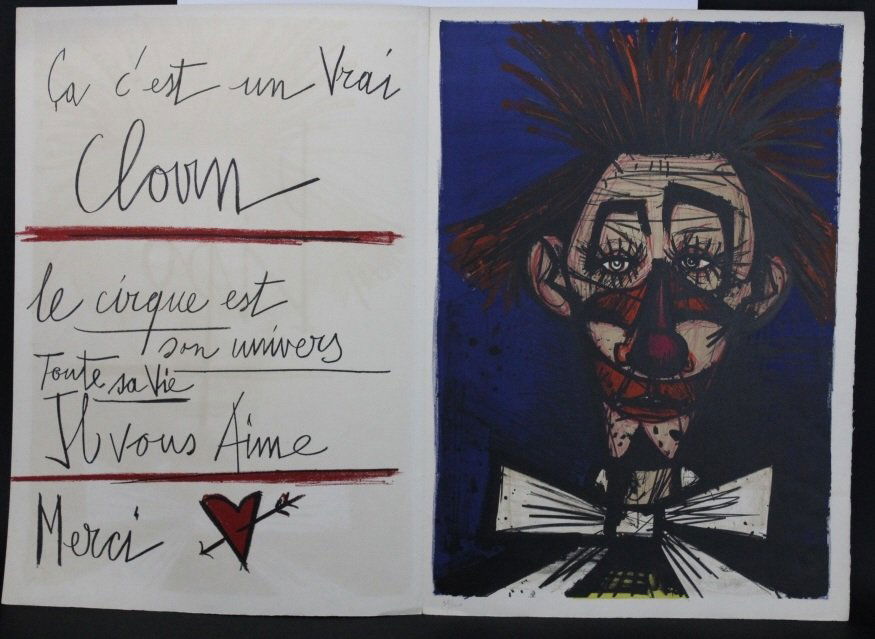 Ça c'est un Vrai
Clown
le cirque est
son univers
Toute sa Vie
Il vous Aime
Merci